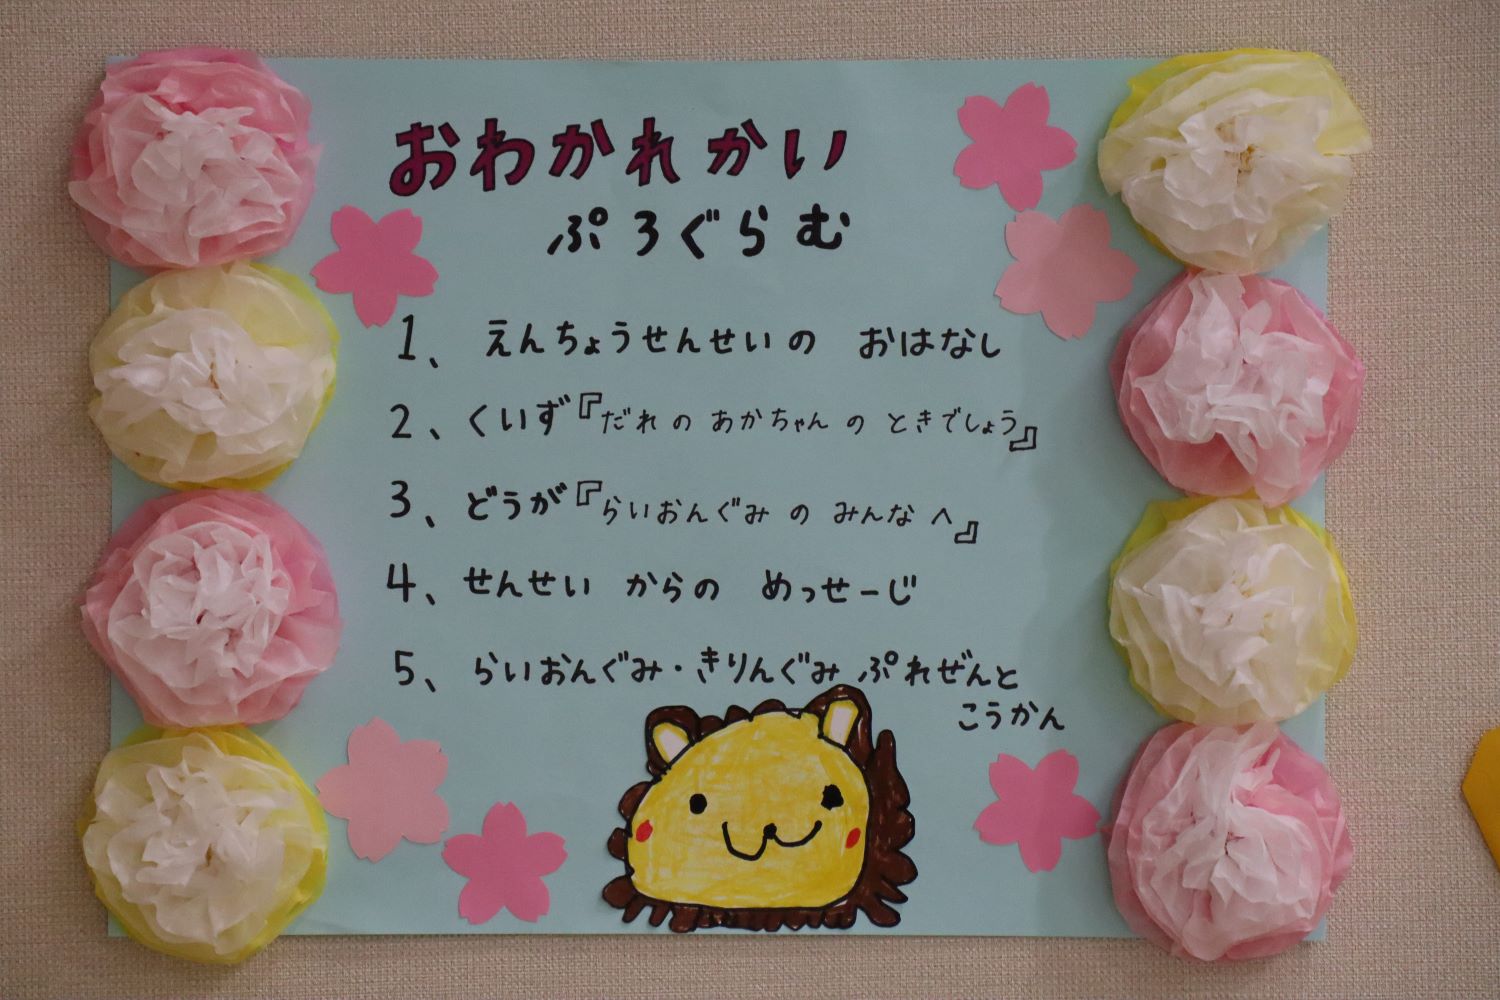 おわかれかい
ぷろぐらむ
1、えんちょうせんせいの おはなし
2、くいず『だれの あかちゃんの ときでしょう』
3、どうが『らいおんぐみの みんなへ』
4、せんせいからの めっせーじ
5、らいおんぐみ・きりんぐみ ぷれぜんと
こうかん